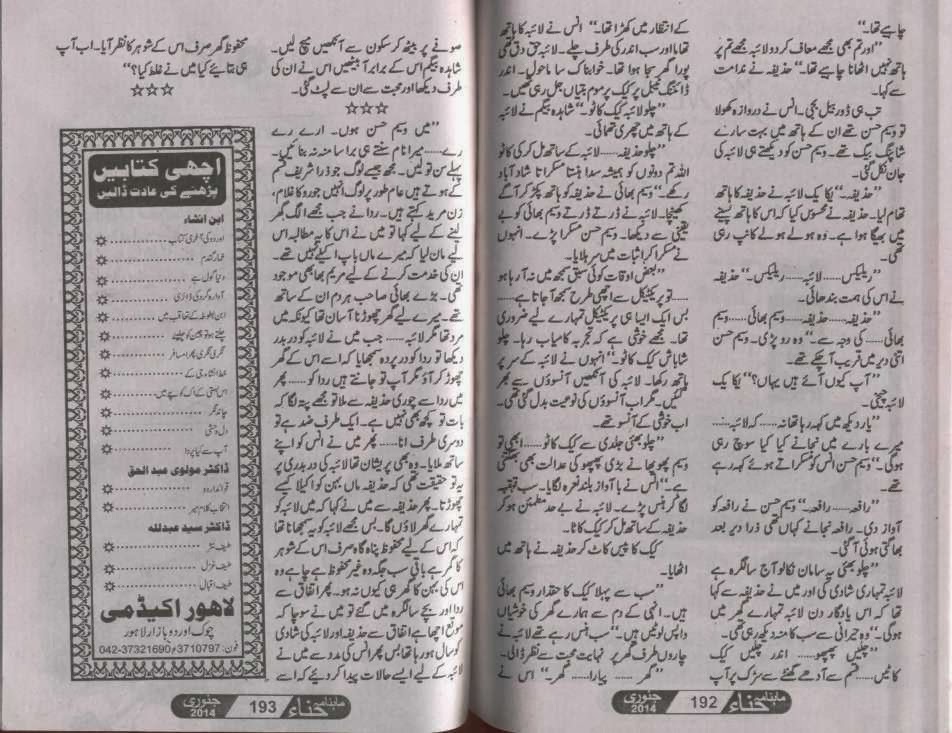 چاہیے تھا۔“
”اور تم بھی مجھے معاف کر دو لائبہ مجھے تم پر
ہاتھ نہیں اٹھانا چاہیے تھا۔“ حذیفہ نے ندامت
سے کہا۔
تب ہی ڈور بیل بجی۔ انس نے دروازہ کھولا
تو وسیم حسن تھے ان کے ہاتھ میں بہت سارے
شاپنگ بیگ تھے۔ وسیم حسن کو دیکھتے ہی لائبہ کی
جان نکل گئی۔
”حذیفہ۔“ یکا یک لائبہ نے حذیفہ کا ہاتھ
تھام لیا۔ حذیفہ نے محسوس کیا کہ اس کا ہاتھ پسینے
میں بھیگا ہوا ہے۔ وہ ہولے ہولے کانپ رہی
تھی۔
”ریلیکس..... لائبہ..... ریلیکس۔“ حذیفہ
نے اس کی ہمت بندھائی۔
”حذیفہ..... حذیفہ..... وسیم بھائی..... وسیم
بھائی..... کی وجہ سے۔“ وہ رو پڑی۔ وسیم حسن
اتنی دیر میں قریب آ چکے تھے۔
”آپ کیوں آئے ہیں یہاں؟“ یکا یک
لائبہ چیخی۔
”یار دیکھ میں کہہ رہا تھا نہ..... کہ لائبہ.....
میرے بارے میں نجانے کیا کیا سوچ رہی
ہو گی۔“ وسیم حسن انس کو مسکراتے ہوئے کہہ رہے
تھے۔
”رافعہ..... رافعہ۔“ وسیم حسن نے رافعہ کو
آواز دی۔ رافعہ نجانے کہاں تھی ذرا دیر بعد
بھاگتی ہوئی آ گئی۔
”چلو بھئی یہ سامان نکالو آج سالگرہ ہے
لائبہ تمہاری شادی کی اور میں نے حذیفہ سے کہا
تھا کہ اس یادگار دن لائبہ تمہارے گھر میں
ہو گی۔“ وہ حیرانی سے سب کا منہ دیکھ رہی تھی۔
”چلیں پھپھو..... اندر چلیں کیک
کاٹیں..... قسم سے آدھے گھنٹے سے سڑک پر آپ
کے انتظار میں کھڑا تھا۔“ انس نے لائبہ کا ہاتھ
تھاما اور سب اندر کی طرف چلے۔ لائبہ حق دق تھی
پورا گھر سجا ہوا تھا۔ خوابناک سا ماحول۔ اندر
ڈائننگ ٹیبل پر کیک پر موم بتیاں جل رہی تھیں۔
”چلو لائبہ کیک کاٹو۔“ شاہدہ بیگم نے لائبہ
کے ہاتھ میں چھری تھمائی۔
”چلو حذیفہ..... لائبہ کے ساتھ مل کر کی کاٹو
اللہ تم دونوں کو ہمیشہ سدا ہنستا مسکراتا شاد آباد
رکھے۔“ وسیم بھائی نے حذیفہ کو ہاتھ پکڑ کر آگے
کھینچا۔ لائبہ نے ڈرتے ڈرتے وسیم بھائی کو بے
یقینی سے دیکھا۔ وسیم حسن مسکرا پڑے۔ انہوں
نے مسکرا کر اثبات میں سر ہلایا۔
”بعض اوقات کوئی سبق سمجھ میں نہ آ رہا ہو
..... تو پریکٹیکل سے اچھی طرح سمجھ آ جاتا ہے.....
بس ایک ایسا ہی پریکٹیکل تمہارے لیے ضروری
تھا۔ مجھے خوشی ہے کہ تجربہ کامیاب رہا۔ چلو
شاباش کیک کاٹو۔“ انہوں نے لائبہ کے سر پر
ہاتھ رکھا۔ لائبہ کی آنکھیں آنسوؤں سے بھر
گئیں۔ مگر اب آنسوؤں کی نوعیت بدل گئی تھی۔
اب خوشی کے آنسو تھے۔
”چلو بھئی جلدی سے کیک کاٹو..... ابھی تو
وسیم پھوپھا نے بڑی پھپھو کی عدالت بھی بھگتنی
ہے۔“ انس نے با آواز بلند نعرہ لگایا۔ سب قہقہہ
لگا کر ہنس پڑے۔ لائبہ نے بے حد مطمئن ہو کر
حذیفہ کے ساتھ مل کر کیک کاٹا۔
کیک کا پیس کاٹ کر حذیفہ نے ہاتھ میں
اٹھایا۔
”سب سے پہلا کیک کا حقدار وسیم بھائی
ہیں۔ انہی کے دم سے ہمارے گھر کی خوشیاں
واپس لوٹیں ہیں۔“ سب ہنس رہے تھے لائبہ نے
چاروں طرف گھر پر نہایت محبت سے نظر ڈالی۔
”گھر..... پیارا..... گھر۔“ اس نے
ماہنامہ حناء 192 جنوری 2014
صوفے پر بیٹھ کر سکون سے آنکھیں میچ لیں۔
شاہدہ بیگم اس کے برابر آ بیٹھیں اس نے ان کی
طرف دیکھا اور محبت سے ان سے لپٹ گئی۔
☆☆☆
”میں وسیم حسن ہوں۔ ارے رے
رے..... میرا نام سنتے ہی برا سا منہ نہ بنائیں۔
پہلے سن تو لیں۔ مجھ جیسے لوگ جو ذرا شریف قسم
کے ہوتے ہیں عام طور پر لوگ انہیں جورو کا غلام،
زن مرید کہتے ہیں۔ ردا نے جب مجھے الگ گھر
لینے کے لیے کہا تو میں نے اس کا یہ مطالبہ اس
لیے مان لیا کہ میرے ماں باپ اکیلے نہیں تھے۔
ان کی خدمت کرنے کے لیے مریم بھابھی موجود
تھی۔ بڑے بھائی صاحب ہر دم ان کے ساتھ
تھے۔ میرے لیے گھر چھوڑنا آسان تھا کیونکہ میں
مرد تھا مگر لائبہ..... جب میں نے لائبہ کو در بدر
دیکھا تو ردا کو در پردہ سمجھایا کہ اسے اس کے گھر
چھوڑ کر آؤ مگر آپ تو جانتے ہیں ردا کو..... پھر
میں ردا سے چوری حذیفہ سے ملا تو مجھے پتہ لگا کہ
بات تو کچھ بھی نہیں ہے۔ ایک طرف ضد ہے تو
دوسری طرف انا..... پھر میں نے انس کو اپنے
ساتھ ملایا۔ وہ بھی پریشان تھا لائبہ کی در بدری پر
یہ تو حقیقت تھی کہ حذیفہ ماں بہن کو اکیلا کیسے
چھوڑتا۔ پھر حذیفہ سے میں نے کہا کہ میں لائبہ کو
تمہارے گھر لاؤں گا۔ بس مجھے لائبہ کو یہ سمجھانا تھا
کہ اس کے لیے محفوظ پناہ گاہ صرف اس کے شوہر
کا گھر ہے باقی سب جگہ وہ غیر محفوظ ہے چاہے وہ
اس کی بہن کا گھر ہی کیوں نہ ہو۔ پھر اتفاق سے
ردا اور بچے سالگرہ میں گئے تو میں نے سوچا کہ
موقع اچھا ہے اتفاق سے حذیفہ اور لائبہ کی شادی
کو سال ہو رہا تھا بس پھر انس کی مدد سے میں نے
لائبہ کے لیے ایسے حالات پیدا کر دیئے کہ اسے
محفوظ گھر صرف اس کے شوہر کا نظر آیا۔ اب آپ
ہی بتائیے کیا میں نے غلط کیا؟“
☆☆☆
اچھی کتابیں
پڑھنے کی عادت ڈالیں
ابن انشاء
اردو کی آخری کتاب
خمار گندم
دنیا گول ہے
آوارہ گرد کی ڈائری
ابن بطوطہ کے تعاقب میں
چلتے ہو تو چین کو چلیے
نگری نگری پھرا مسافر
خط انشا جی کے
اس بستی کے اک کوچے میں
چاند نگر
دل وحشی
آپ سے کیا پردہ
ڈاکٹر مولوی عبد الحق
قواعد اردو
انتخاب کلام میر
ڈاکٹر سید عبدللہ
طیف نثر
طیف غزل
طیف اقبال
لاھور اکیڈمی
چوک اردو بازار لاہور
فون: 3710797, 042-37321690
ماہنامہ حناء 193 جنوری 2014